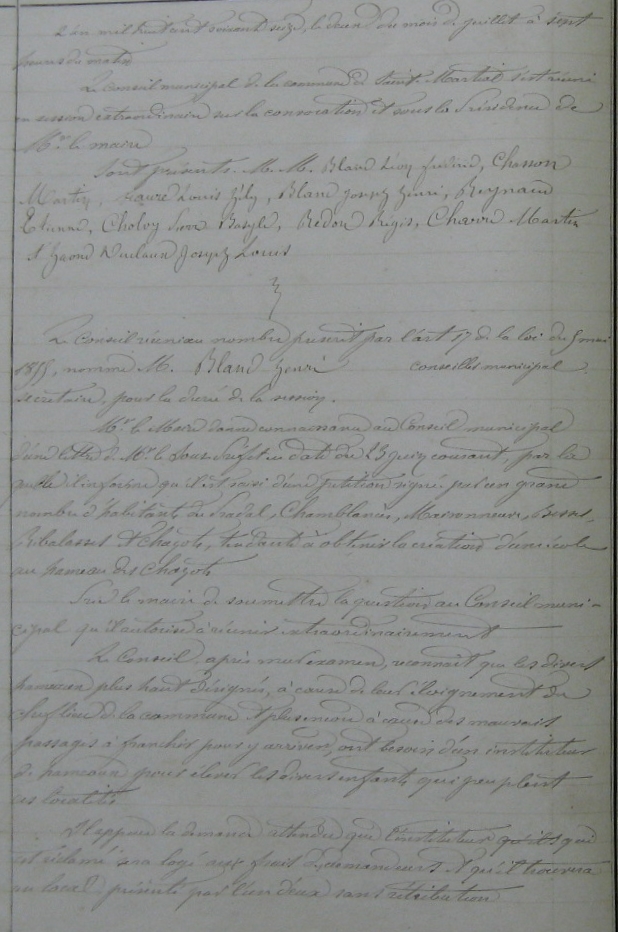 L'an mil huit cent soixante seize, le deux du mois de juillet à sept
heures du matin
Le Conseil municipal de la commune de Saint-Martial s'est réuni
en session extraordinaire sur la convocation et sous la Présidence de
Mr le maire
Sont présents M. M. Blanc Léon, Chasson
Martin, Faure Louis, Blanc Joseph Henri, Reynaud
Etienne, Cholvy Basyle, Redon Régis, Martin
et Joseph Louis
Le Conseil réuni au nombre prescrit par l'art 17 de la loi du 5 mai
1855, nomme M. Blanc Henri conseiller municipal
secrétaire, pour la durée de la session.
Mr le Maire donne connaissance au Conseil municipal
d'une lettre de Mr le Sous-Préfet en date du 23 juin courant, par la
quelle il informe qu'il est saisi d'une pétition signée par un grand
nombre d'habitants de Chamblance, Massonneuve,
Ribalasses et Chazots, tendant à obtenir la création d'une école
au hameau des Chazots
Prie le maire de soumettre la question au Conseil muni-
cipal qu'il autorise à réunir extraordinairement
Le Conseil, après mur examen, reconnait que les divers
hameaux plus haut désignés, à cause de leur éloignement du
chef lieu de la commune et plus encore à cause des mauvais
passages à franchir pour y arriver, ont besoin d'un instituteur
de hameau pour élever les divers enfants qui peuplent
ces localités
Il appuie la demande attendu que l'instituteur qu'ils qui
est réclamé sera logé aux frais des demandeurs et qu'il trouvera
un local présenté par l'un d'eux sans rétribution